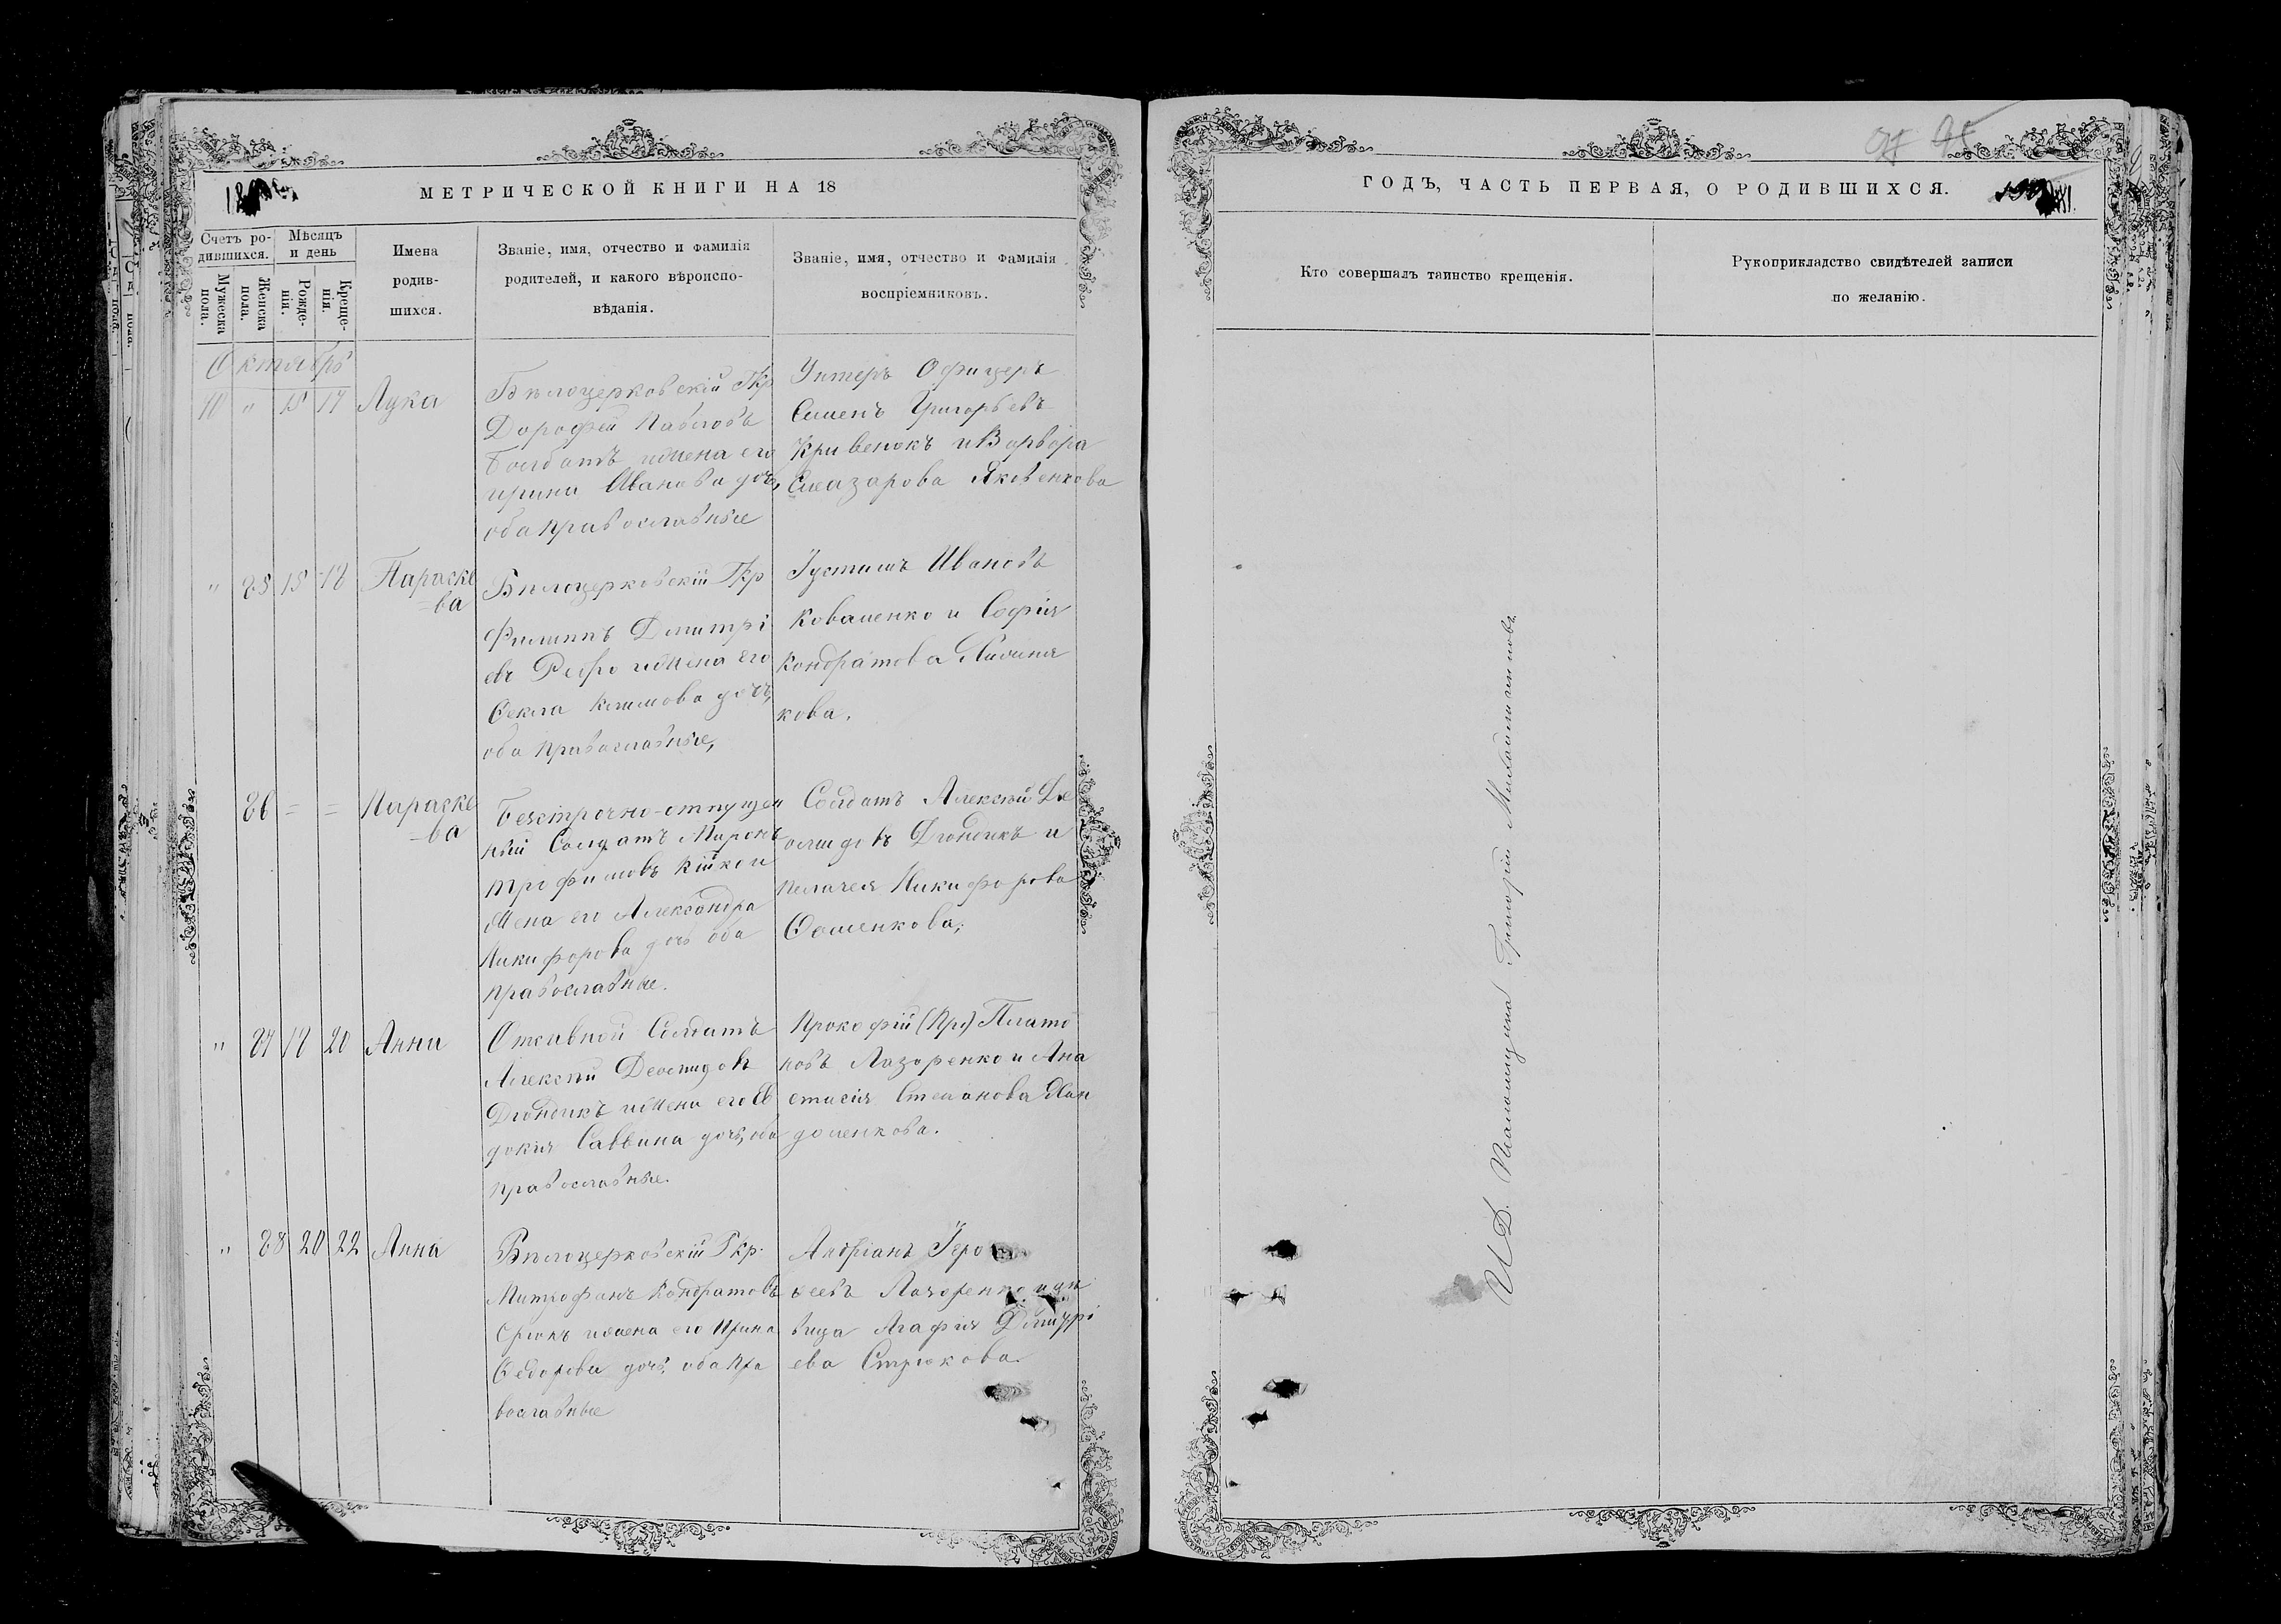 МЕТРИЧЕСКОЙ КНИГИ НА 18
Счетъ ро-
дившихся.
Мѣсяцъ
и день
Мужеска
пола.
Женска
пола.
Рожде-
нія.
Креще-
нія.
Имена
родив-
шихся.
Званіе, имя, отчество и фамилія
родителей, и какого вѣроиспо-
вѣданія.
Званіе, имя, отчество и фамилія
воспріемниковъ.
Октябрь
10 " 15 17 Лука
Бѣлоцерковскій Гкр
Дорофей Павловъ
Болбатъ ижена его
Ирина Иванова дочь,
оба православные
Унтеръ Офицеръ
Семенъ Григорьевъ
Кривенокъ и Варвара
Елеазарова Яковенкова
" 85 15 18 Параске
=ва
Бѣлоцерковскій Гкр
Филиппъ Дмитрі
евъ ижена его
Фекла Климова дочь,
оба православные,
Густинъ Ивановъ
Коваленко и Софія
Кондратова
кова.
86 = = Параске
=ва
Безсрочно-отпущен
ный Солдатъ Миронъ
Трофимовъ Кійко и
жена его Александра
Никифорова дочь оба
православные.
Солдатъ Алексѣй Де
омидовъ Дгондикъ и
Пелагея Никифорова
Фоменкова;
" 87 18 20 Анна
Отставной Солдатъ
Алексѣй Деомидовъ
Дгондикъ ижена его Ев
докія Саввина дочь, оба
православные.
Прокофій (Пр.) Плато
новъ Лазоренко и Ана
стасія Степанова Ман
доленкова.
" 88 20 22 Анна
Бѣлоцерковскій Гкр.
Митрофанъ Кондратовъ
ижена его Ирина
Федорова дочь, оба пра
вославные
Андріанъ Геро
ѳеевъ Лазоренко и дѣ
вица Агафія Дмитрі
ева Стрюкова.
ГОДЪ, ЧАСТЬ ПЕРВАЯ, О РОДИВШИХСЯ.
95
Кто совершалъ таинство крещенія.
Рукоприкладство свидѣтелей записи
по желанію.
И. Д. Псаломщика Григорій